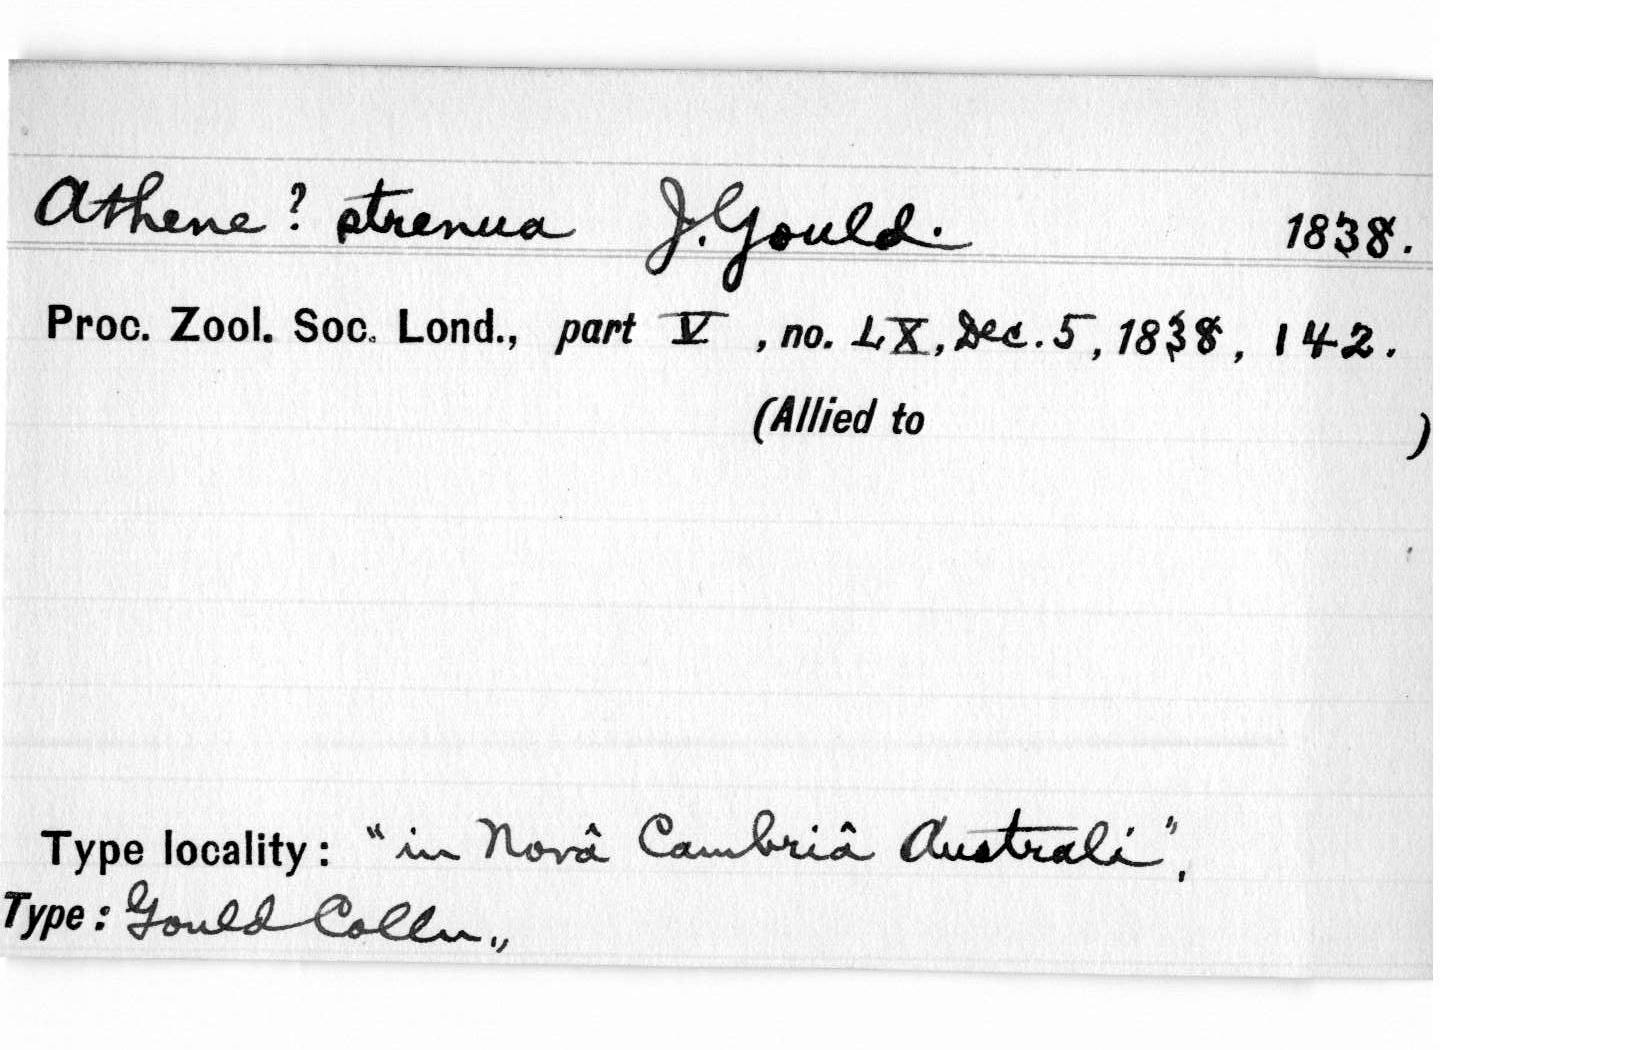 Athene ? strenua J. Gould. 1838.
Proc. Zool. Soc. Lond., part V , no. LX, Dec. 5, 1838, 142.
(Allied to )
Type locality: "in Novâ Cambriâ Australi",
Type: Gould Colln.,,